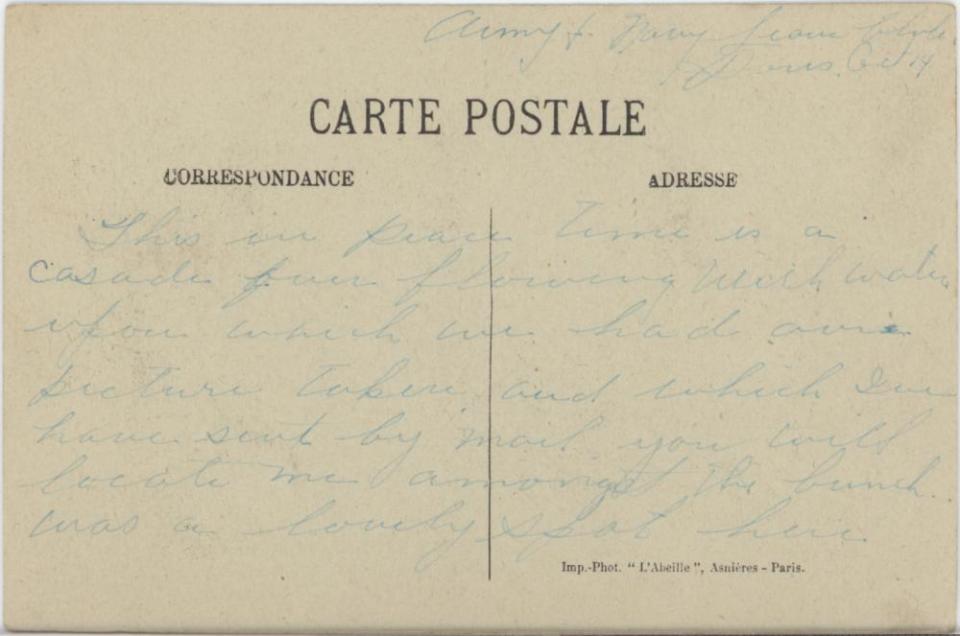 Army & Navy Leave Club
Paris. Oct 19
CARTE POSTALE
CORRESPONDANCE
ADRESSE
This in peace time is a
casade for flowing with water
upon which we had our
picture taken and which I
have sent by mail. you will
locate me amongst the bunch.
was a lovely spot here
Imp.-Phot. “ L'Abeille ”, Asnières - Paris.